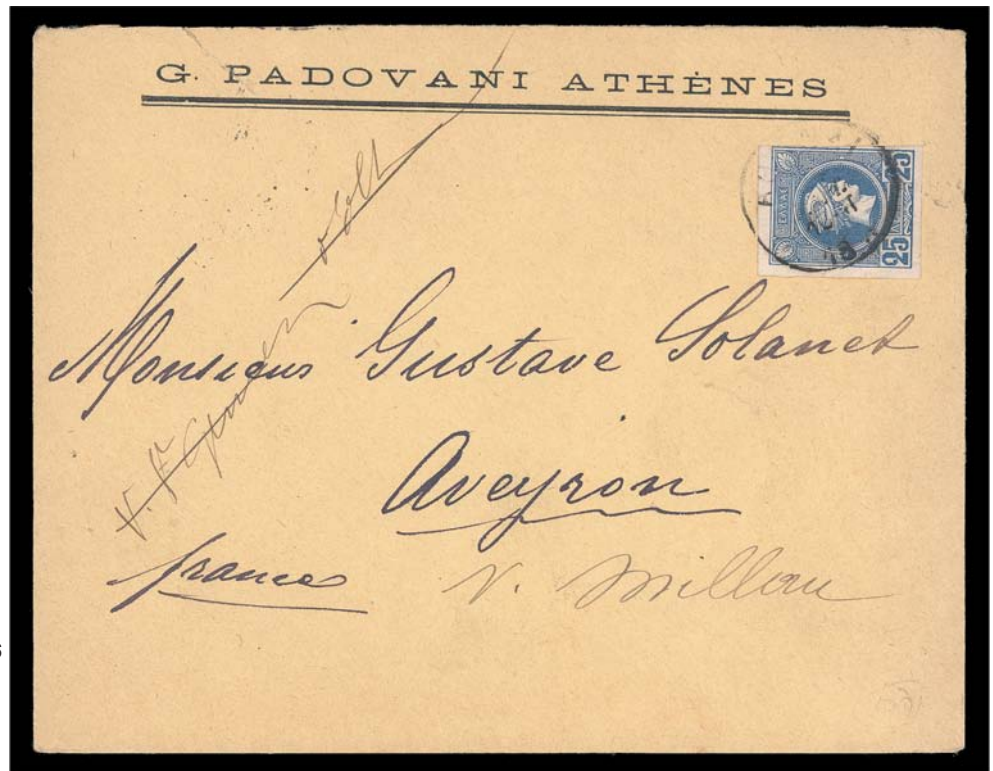 G. PADOVANI ATHÈNES
25 25
ΕΛΛΑΣ
12
18
Monsieur Gustave Solanet
Aveyron
france
V. Millau
6